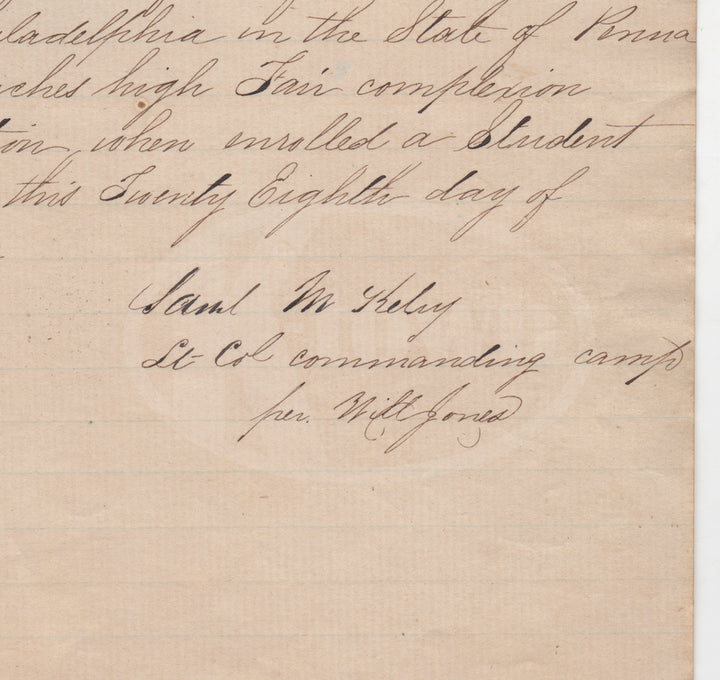 iladelphia in the State of Penna
ches high Fair complexion
when enrolled a Student
this Twenty Eighth day of
Saml M Kelvy
Lt Col commanding camp
per. Will Jones